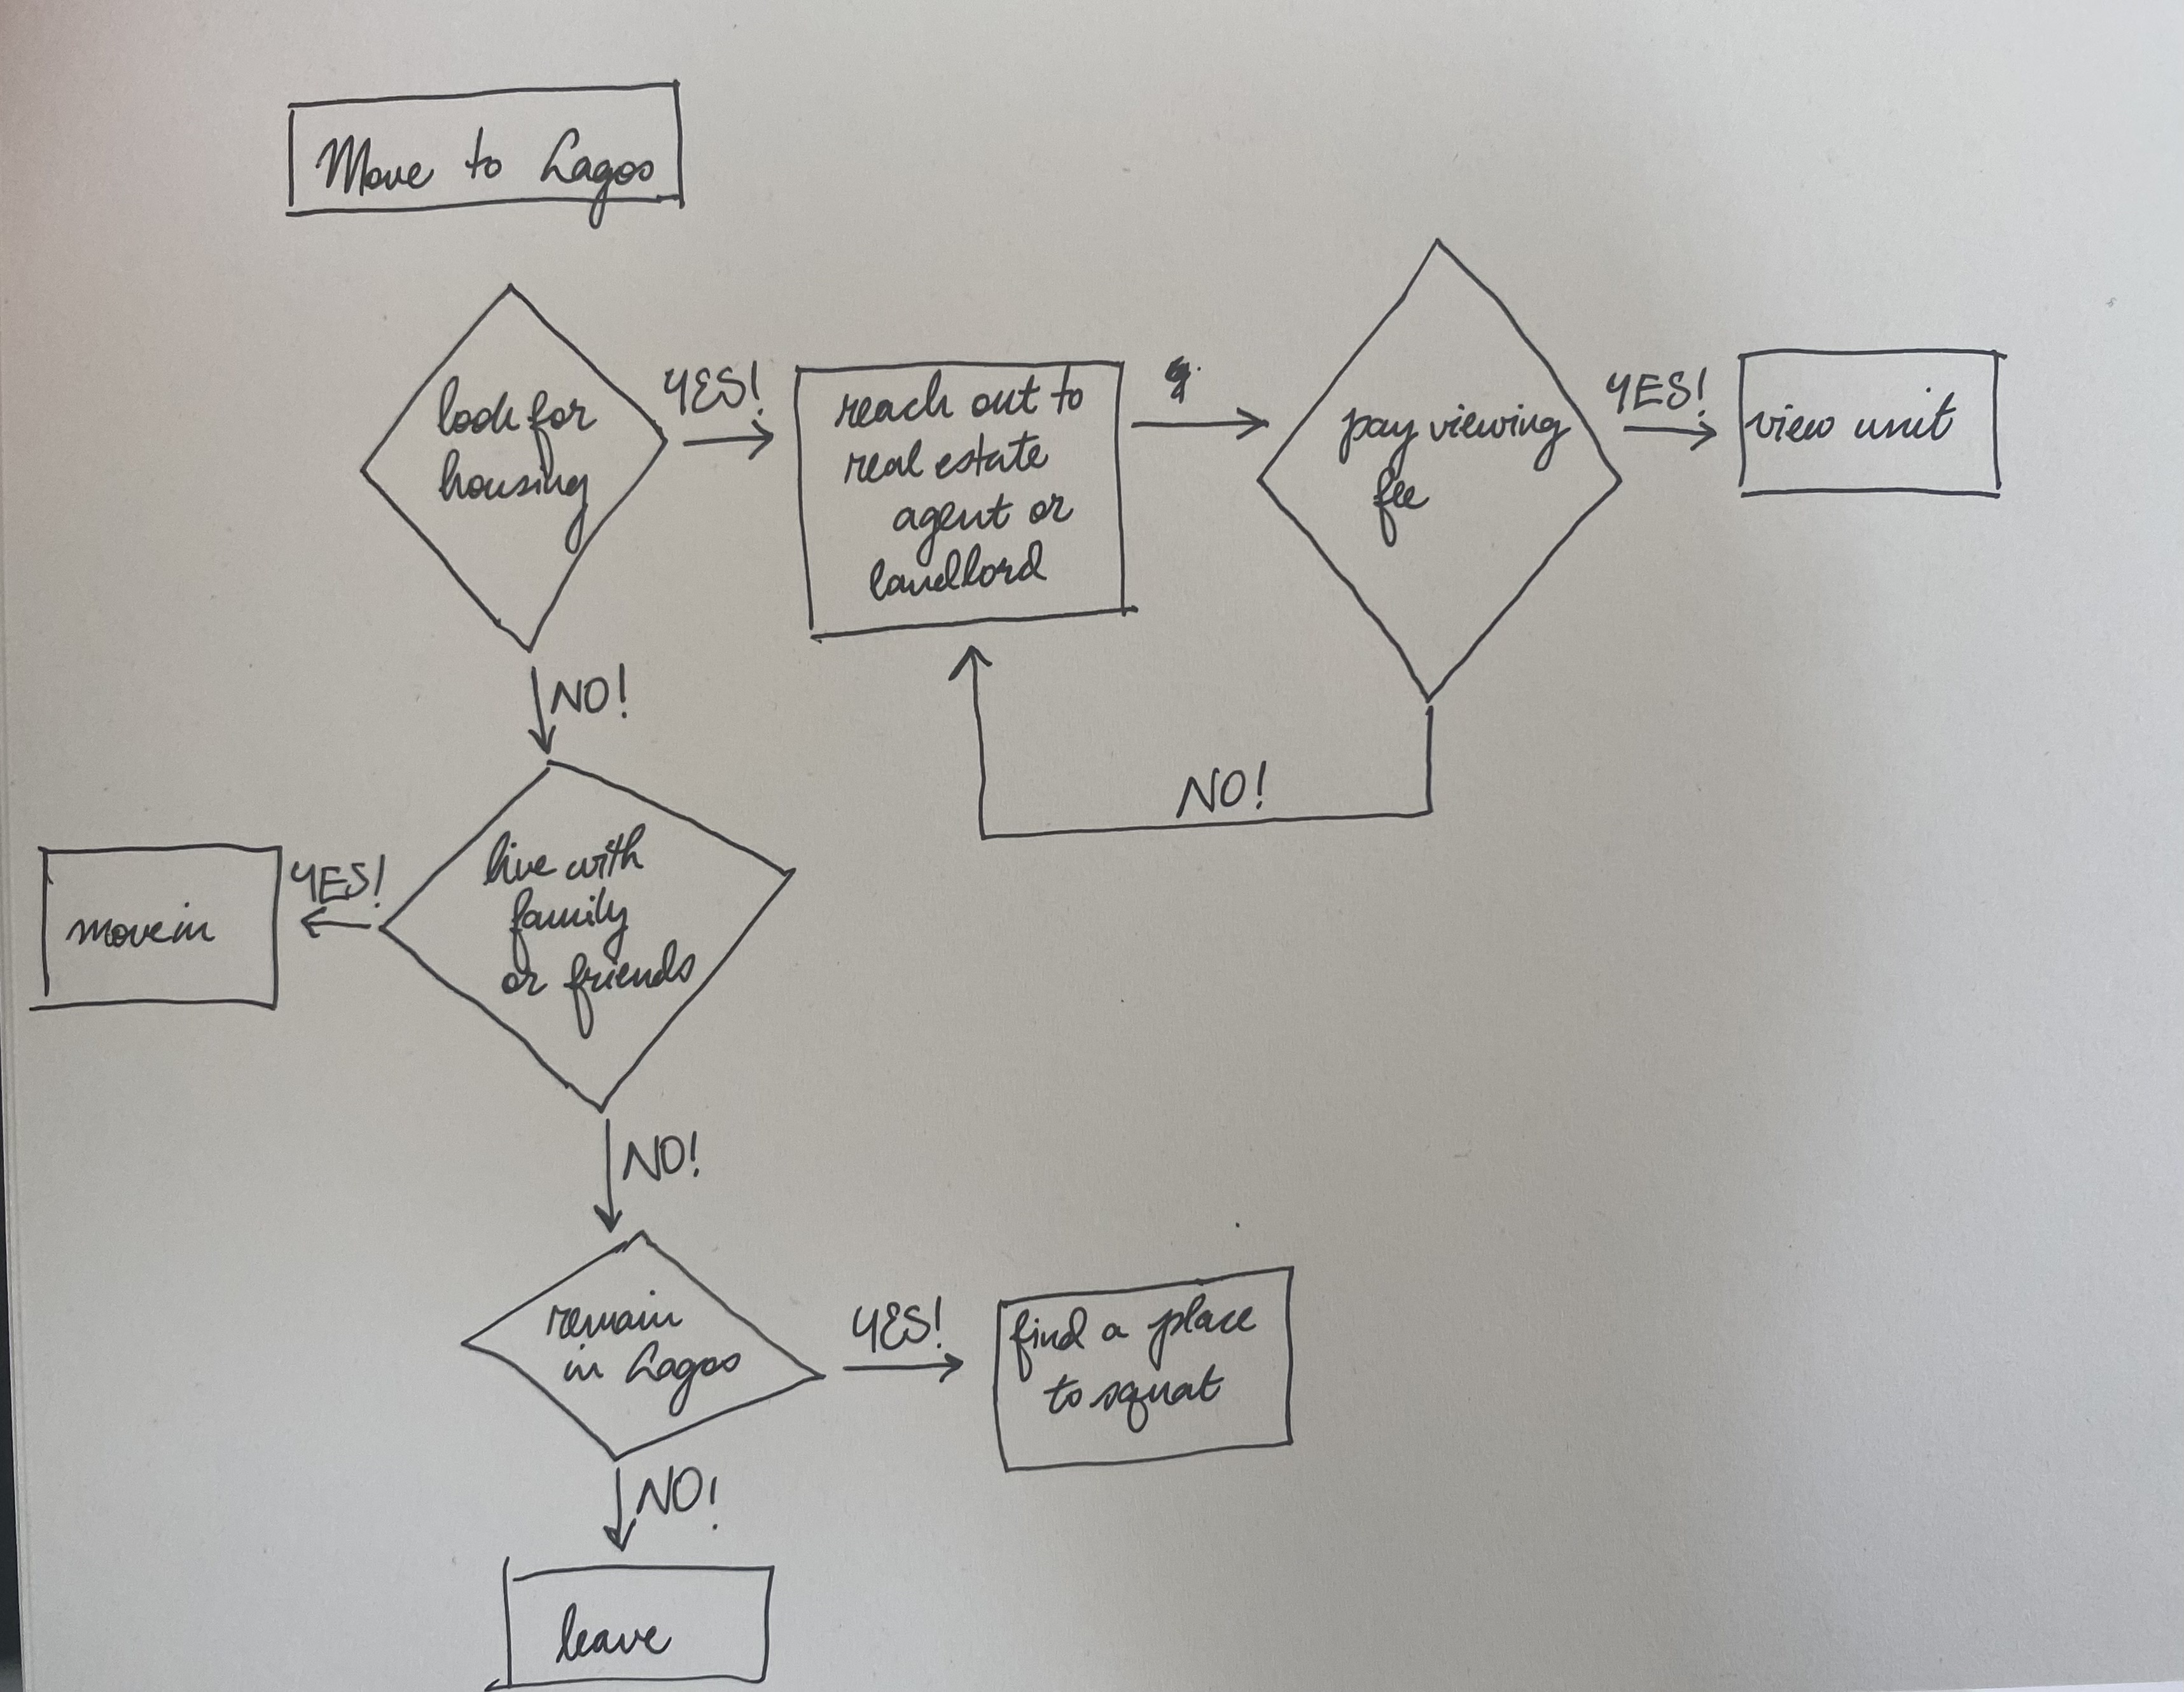 Move to Lagos
look for
housing
YES!
reach out to
real estate
agent or
landlord
pay viewing
fee
YES!
view unit
NO!
NO!
live with
family
or friends
YES!
move in
NO!
remain
in Lagos
YES!
find a place
to squat
NO!
leave